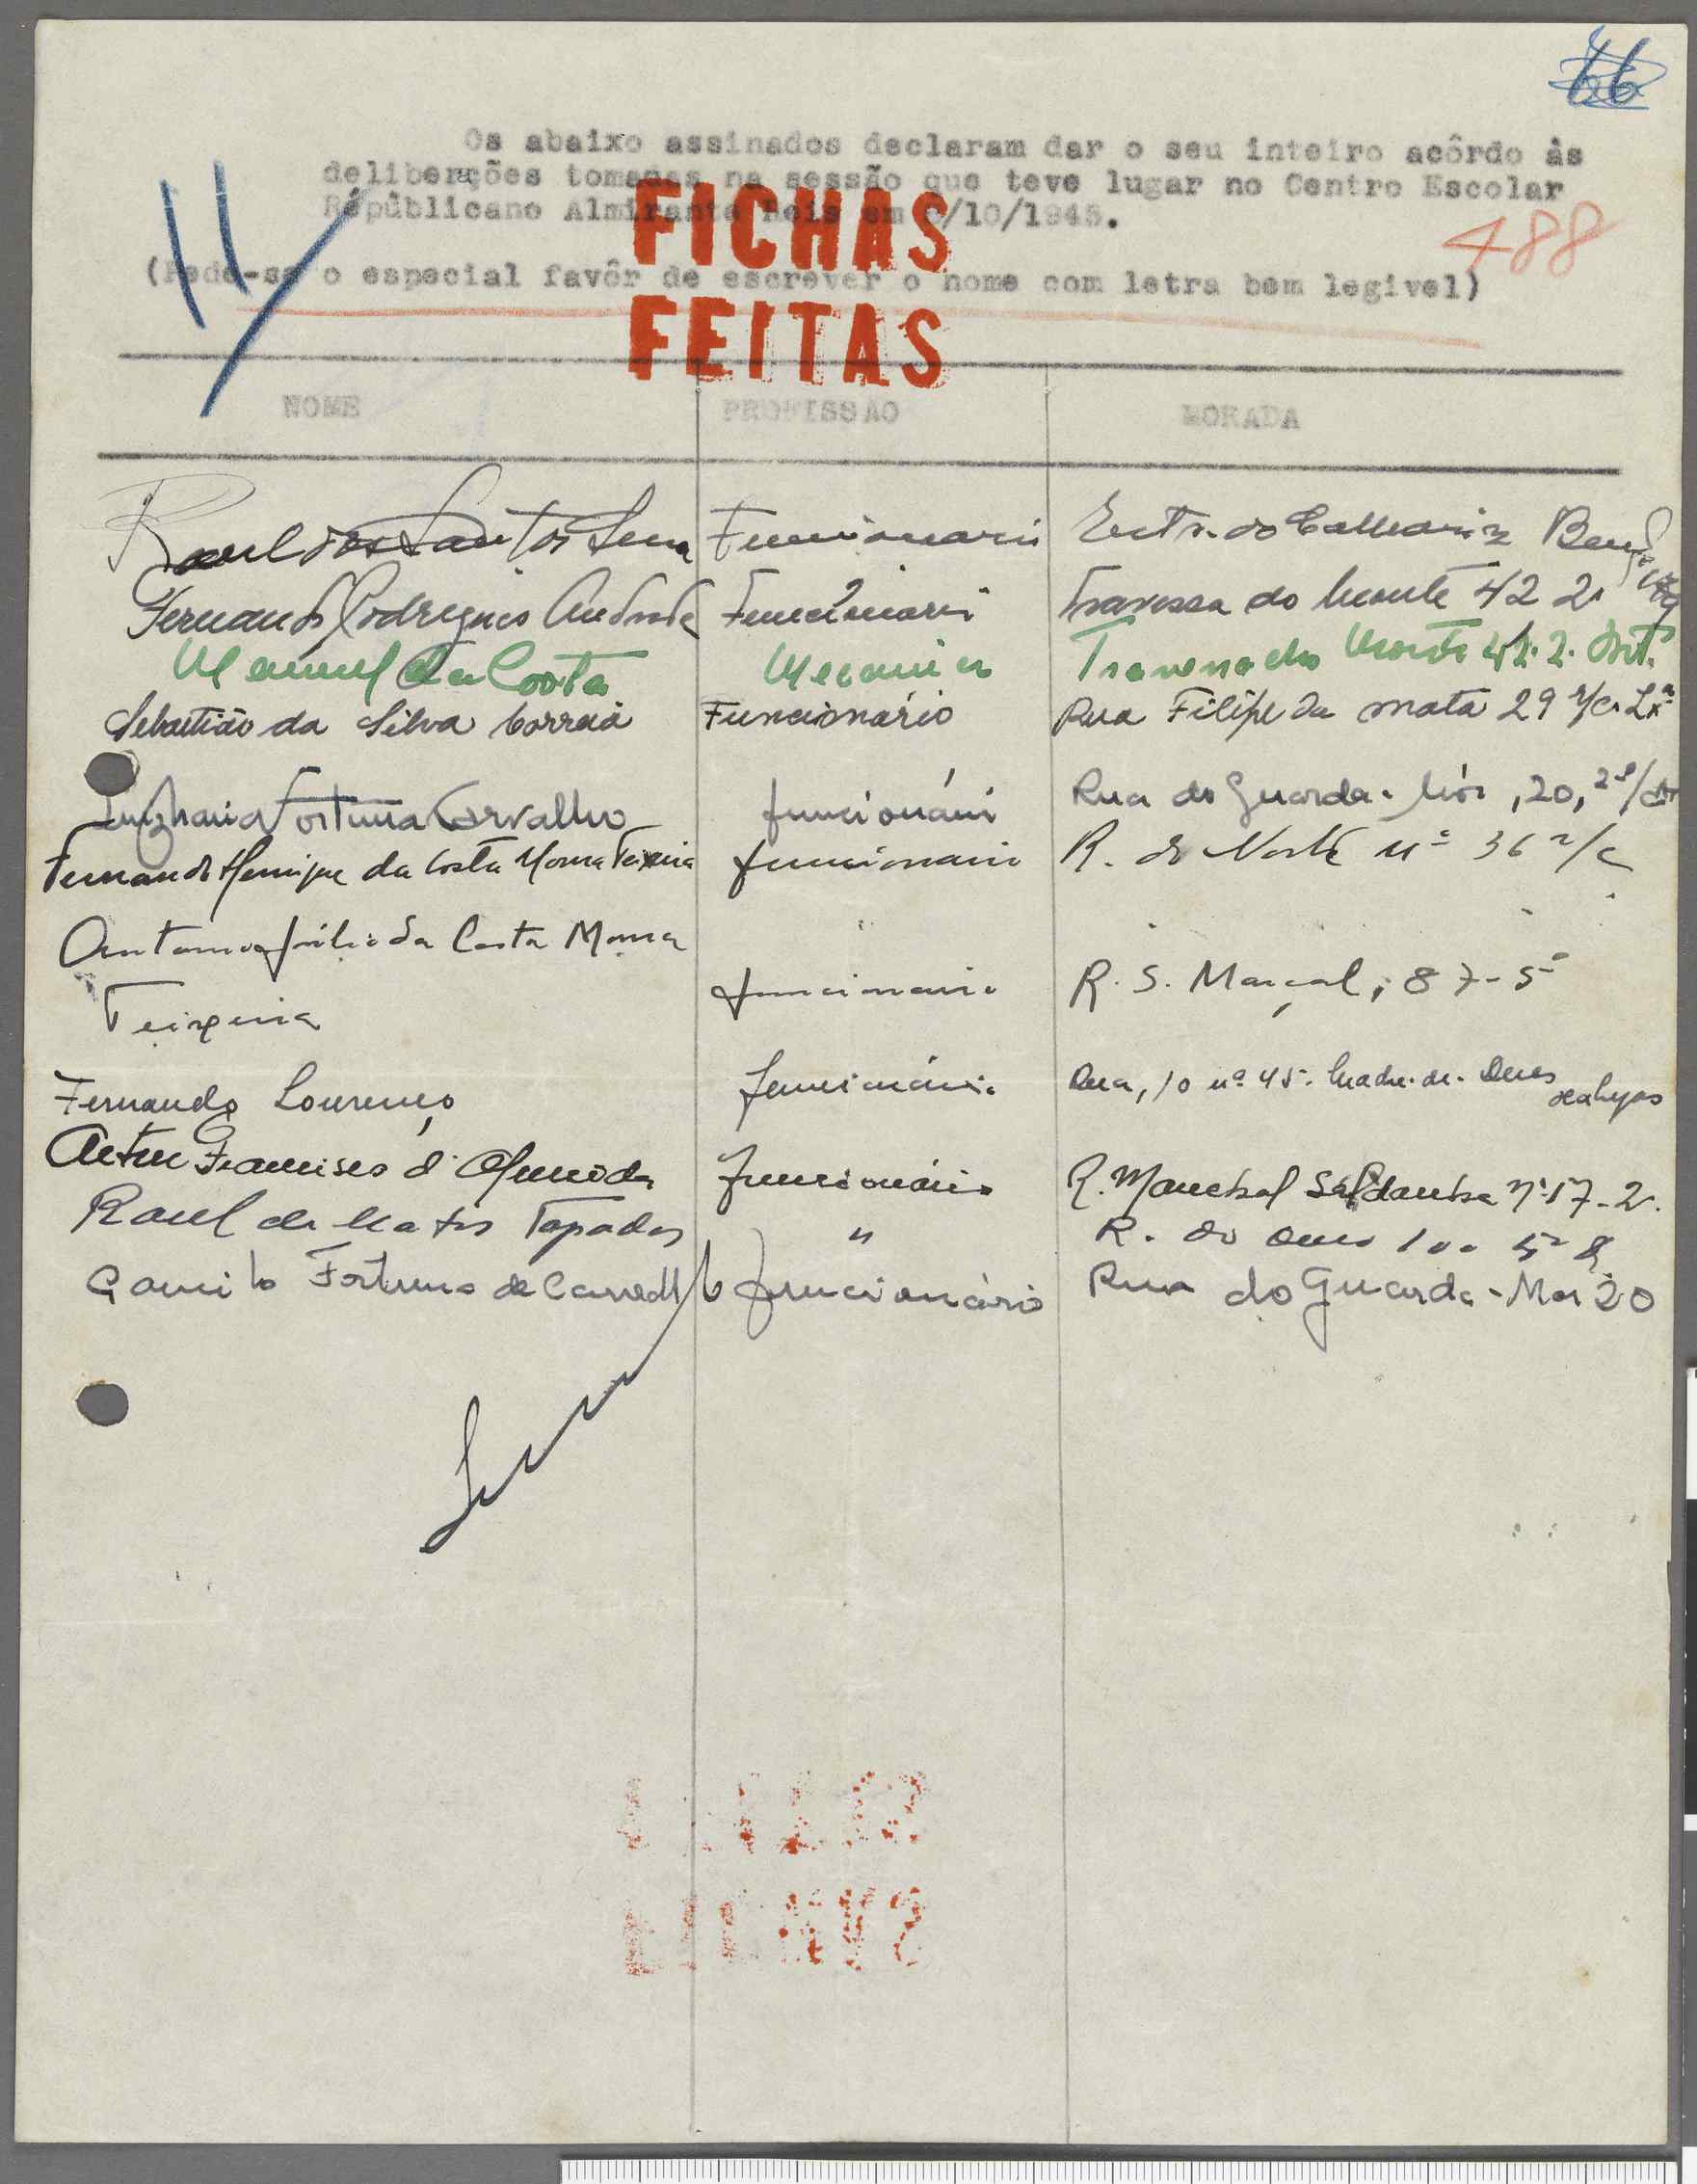 66
Os abaixo assinados declaram dar o seu inteiro acôrdo às
deliberções tomadas na sessão que teve lugar no Centro Escolar
Rèpùblicano Almirante Reis em /10/1945.
488
(Pede-se o especial favôr de escrever o nome com letra bem legivel)
FICHAS
FEITAS
11
NOME PROFISSAO MORADA
Raul dos Santos Sena Funcionario Estr. do Calhariz Benf
Fernando Rodrigues Andrade Funcionario Travessa do Monte 42 2º
Manuel da Costa Mecanico Travessa do Monte 42. 2. Drt.
Sebastião da Silva Correia Funcionário Rua Filipe da mata 29 r/c Lxª
Luiz Maria Fortuna Carvalho funcionário Rua do Guarda-Mór, 20, 2º/
Fernando Henrique da Costa Moura Teixeira funcionario R. do Norte nº 36 r/c
Antonio Júlio da Costa Moura
Teixeira funcionario R. S. Marçal, 87-5º
Fernando Lourenço funcionário Rua, 10 nº 45. Madre. de. Deus
Artur Francisco d'Almeida funcionário R. Marechal Saldanha nº 17-2º.
Raul de Matos Tapadas " R. do Ouro 100 5º
Camilo Fortuna de Carvalho funcionário Rua do Guarda-Mor 20